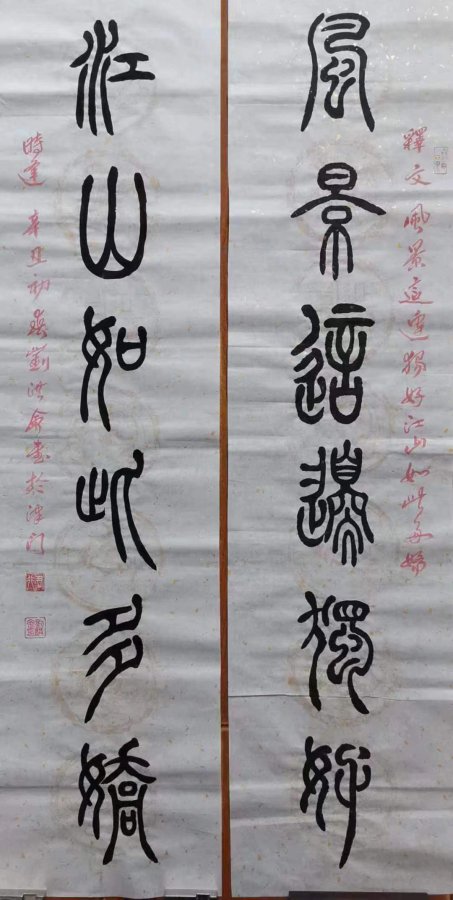 釋文 風景這邊獨好江山如此多嬌
風景這邊獨好
江山如此多嬌
辛丑初劉洪書於津門